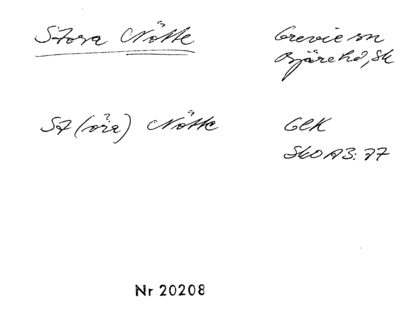 Stora Nötte
Grevie sn
Bjäre hd, Sk
St (ora) Nötte
GEK
SkO A3: 77
Nr 20208